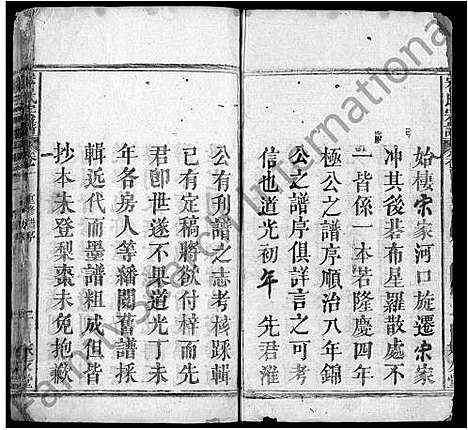 始棲宗家河口旋遷宗家
冲其後碁布星羅散處不
一皆係一本若隆慶四年
極公之譜序順治八年錦
公之譜序俱詳言之可
信也道光初年 先君濰
公有刊譜之志考核踩輯
已有定稿將欲付梓而先
君卽世遂不果道光丁未
年各房人等繙閱舊譜採
輯近代而墨譜粗成但皆
抄本未登梨棗未免抱歉
FamilySearch International